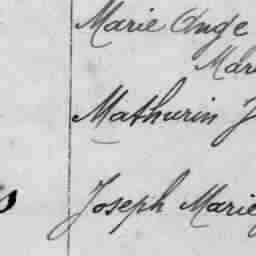 Marie Ange
Mari
Mathurin J
Joseph Marie